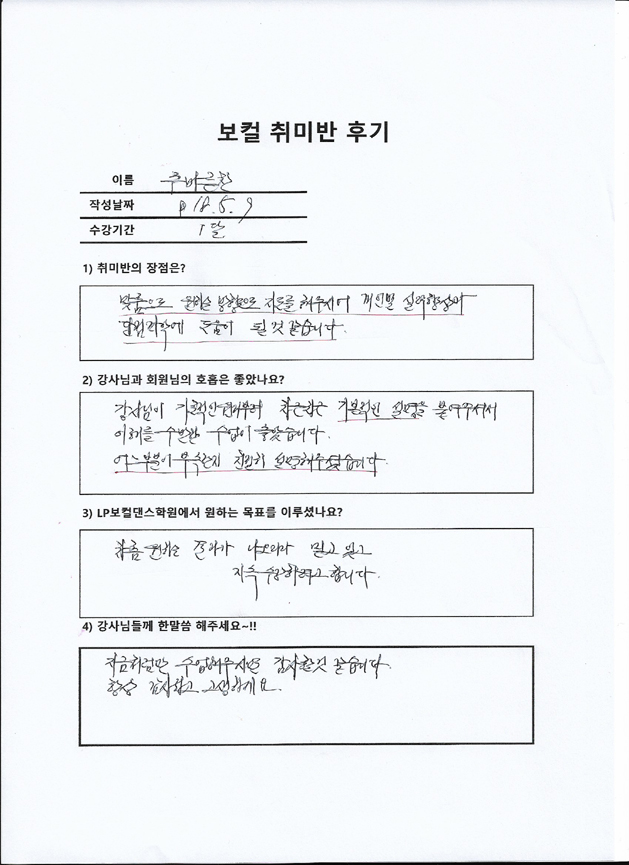 보컬 취미반 후기
이름
작성날짜 18.5.9
수강기간 1달
1) 취미반의 장점은?
맞춤으로 원하는 방향으로 지도를 해주시어 개인별 실력향상과
도움이 될 것 같습니다.
2) 강사님과 회원님의 호흡은 좋았나요?
강사님이 차근차근 기본적인 설명을 붙여주셔서
이해를 수반한 수업이 좋았습니다.
어느부분이 부족한지 친절히 설명해주셨습니다.
3) LP보컬댄스학원에서 원하는 목표를 이루셨나요?
차츰 원하는 결과가 나오리라 믿고 있고
지속 수강하려고 합니다.
4) 강사님들께 한말씀 해주세요~!!
지금처럼만 수업해주시면 감사할것 같습니다.
항상 감사하고 고생하세요.